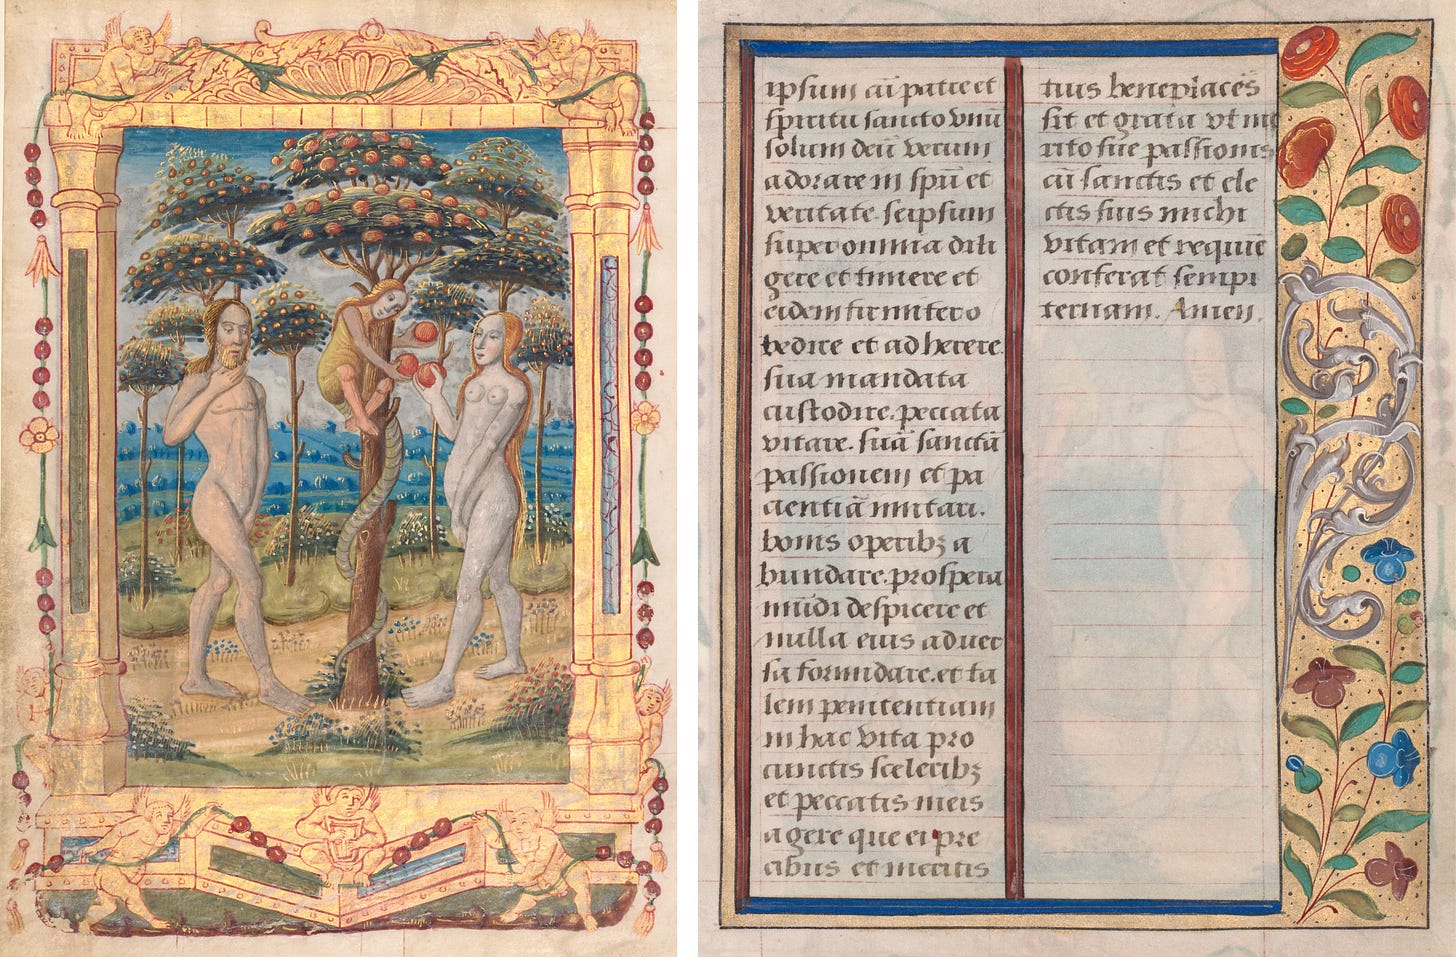 ipsum cũ patre et
spiritu sancto vnũ
solum deũ verum
adorare in spũ et
veritate. seipsum
super omnia dili
gere et timere et
eidem firmitero
bedire et adherere.
sua mandata
custodire. peccata
vitare. suã sanctã
passionem et pa
cientiã imitari.
bonis operibꝫ a
bundare. prospera
mũdi despicere et
nulla eius aduer
sa formidare. et ta
lem penitentiam
in hac vita pro
cunctis sceleribꝫ
et peccatis meis
agere que ei pre
cibus et meritis
tuis beneplacẽs
sit et grata vt me
rito sue passionis
cũ sanctis et ele
ctis suis michi
vitam et requiẽ
conferat sempi
ternam. Amen.